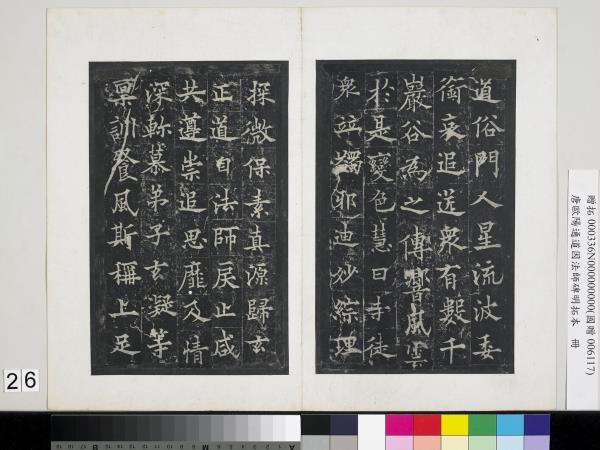 道俗門人星流波委
銜哀追送衆有數千
巖谷為之傳響風雲
於是變色慧日寺徒
衆竝蠲邪迪妙綜理
探微保素真源歸玄
正道自法師戾止咸
共遵崇追思靡及情
深軫慕弟子玄凝等
稟訓餐風斯稱上足
贈拓 000336N000000000(國贈 006117)
唐歐陽通道因法師碑明拓本 冊
26